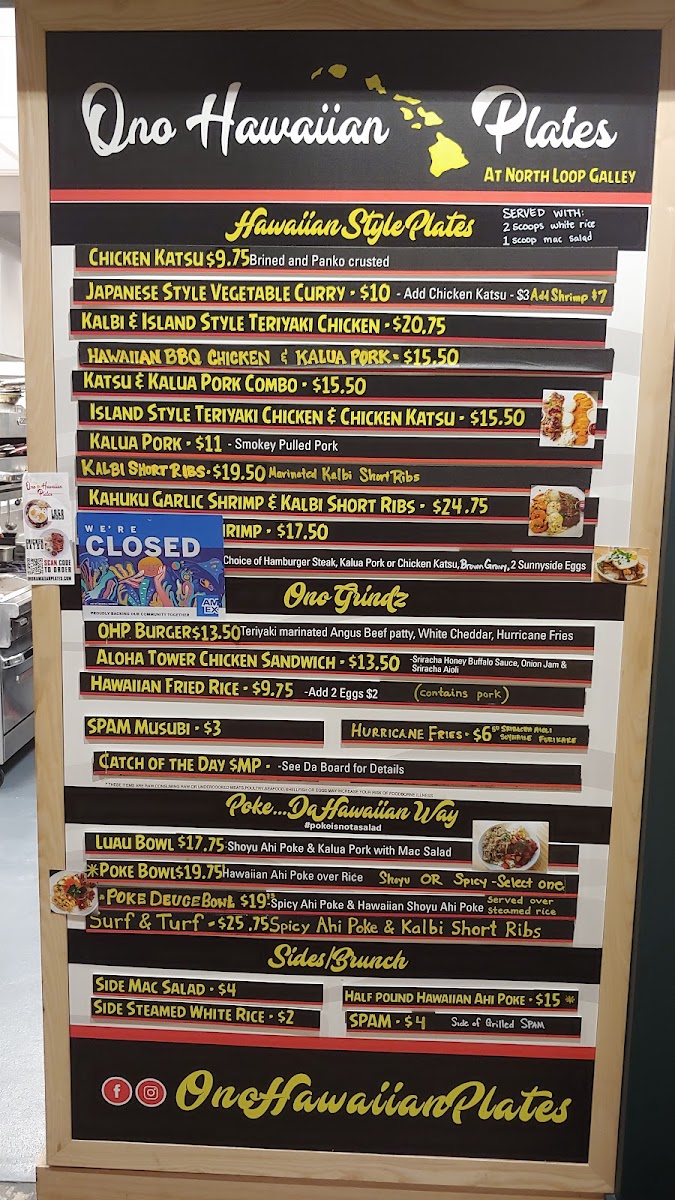 Ono Hawaiian Plates
AT NORTH LOOP GALLEY
Hawaiian Style Plates
SERVED WITH:
2 scoops white rice
1 scoop mac salad
CHICKEN KATSU $9.75 Brined and Panko crusted
JAPANESE STYLE VEGETABLE CURRY - $10 - Add Chicken Katsu - $3 Add Shrimp $7
KALBI & ISLAND STYLE TERIYAKI CHICKEN - $20.75
HAWAIIAN BBQ CHICKEN & KALUA PORK - $15.50
KATSU & KALUA PORK COMBO - $15.50
ISLAND STYLE TERIYAKI CHICKEN & CHICKEN KATSU - $15.50
KALUA PORK - $11 - Smokey Pulled Pork
KALBI SHORT RIBS - $19.50 Marinated Kalbi Short Ribs
KAHUKU GARLIC SHRIMP & KALBI SHORT RIBS - $24.75
HRIMP - $17.50
Choice of Hamburger Steak, Kalua Pork or Chicken Katsu, Brown Gravy, 2 Sunnyside Eggs
Ono Hawaiian
Plates
SCAN CODE
TO ORDER
ONOHAWAIIANPLATES.COM
WE'RE
CLOSED
PROUDLY BACKING OUR COMMUNITY TOGETHER
AM
EX
Ono Grindz
OHP BURGER $13.50 Teriyaki marinated Angus Beef patty, White Cheddar, Hurricane Fries
ALOHA TOWER CHICKEN SANDWICH - $13.50 -Sriracha Honey Buffalo Sauce, Onion Jam &
Sriracha Aioli
HAWAIIAN FRIED RICE - $9.75 -Add 2 Eggs $2 (contains pork)
SPAM MUSUBI - $3
HURRICANE FRIES - $6.50 SRIRACHA AIOLI
FURIKAKE
CATCH OF THE DAY $MP - -See Da Board for Details
Poke...Da Hawaiian Way
#pokeisnotasalad
LUAU BOWL $17.75 -Shoyu Ahi Poke & Kalua Pork with Mac Salad
*POKE BOWL $19.75 Hawaiian Ahi Poke over Rice Shoyu OR Spicy -Select one
-POKE DEUCE BOWL $19 -Spicy Ahi Poke & Hawaiian Shoyu Ahi Poke served over
steamed rice
Surf & Turf - $25.75 Spicy Ahi Poke & Kalbi Short Ribs
Sides/Brunch
SIDE MAC SALAD - $4
HALF POUND HAWAIIAN AHI POKE - $15 *
SIDE STEAMED WHITE RICE - $2
SPAM - $4 Side of Grilled SPAM
OnoHawaiianPlates